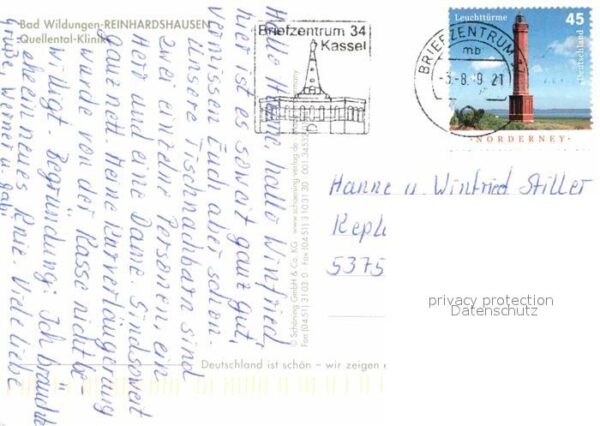 Bad Wildungen-REINHARDSHAUSEN
Quellental-Klinik
Hallo Hanne, hallo Winfried,
hier ist es soweit ganz gut,
vermissen Euch aber schon.
Unsere Tischnachbarn sind
zwei einzelne Personen, ein
Herr und eine Dame. Sind soweit
ganz nett. Meine Kurverlängerung
wurde von der Kasse nicht be-
willigt. Begründung: Ich brauchte
ein neues Knie. Viele liebe
Grüße, Werner u. Gabi
© Schöning GmbH & Co. KG · www.schoening-verlag.de
Fax (0451) 31 03 0
Deutschland ist schön – wir zeigen e
Briefzentrum 34
Kassel
BRIEFZENTRUM 34
mb
-3.-8.-9 21
Leuchttürme
45
Deutschland
NORDERNEY
Hanne u. Winfried Stiller
Kepl
5375
privacy protection
Datenschutz